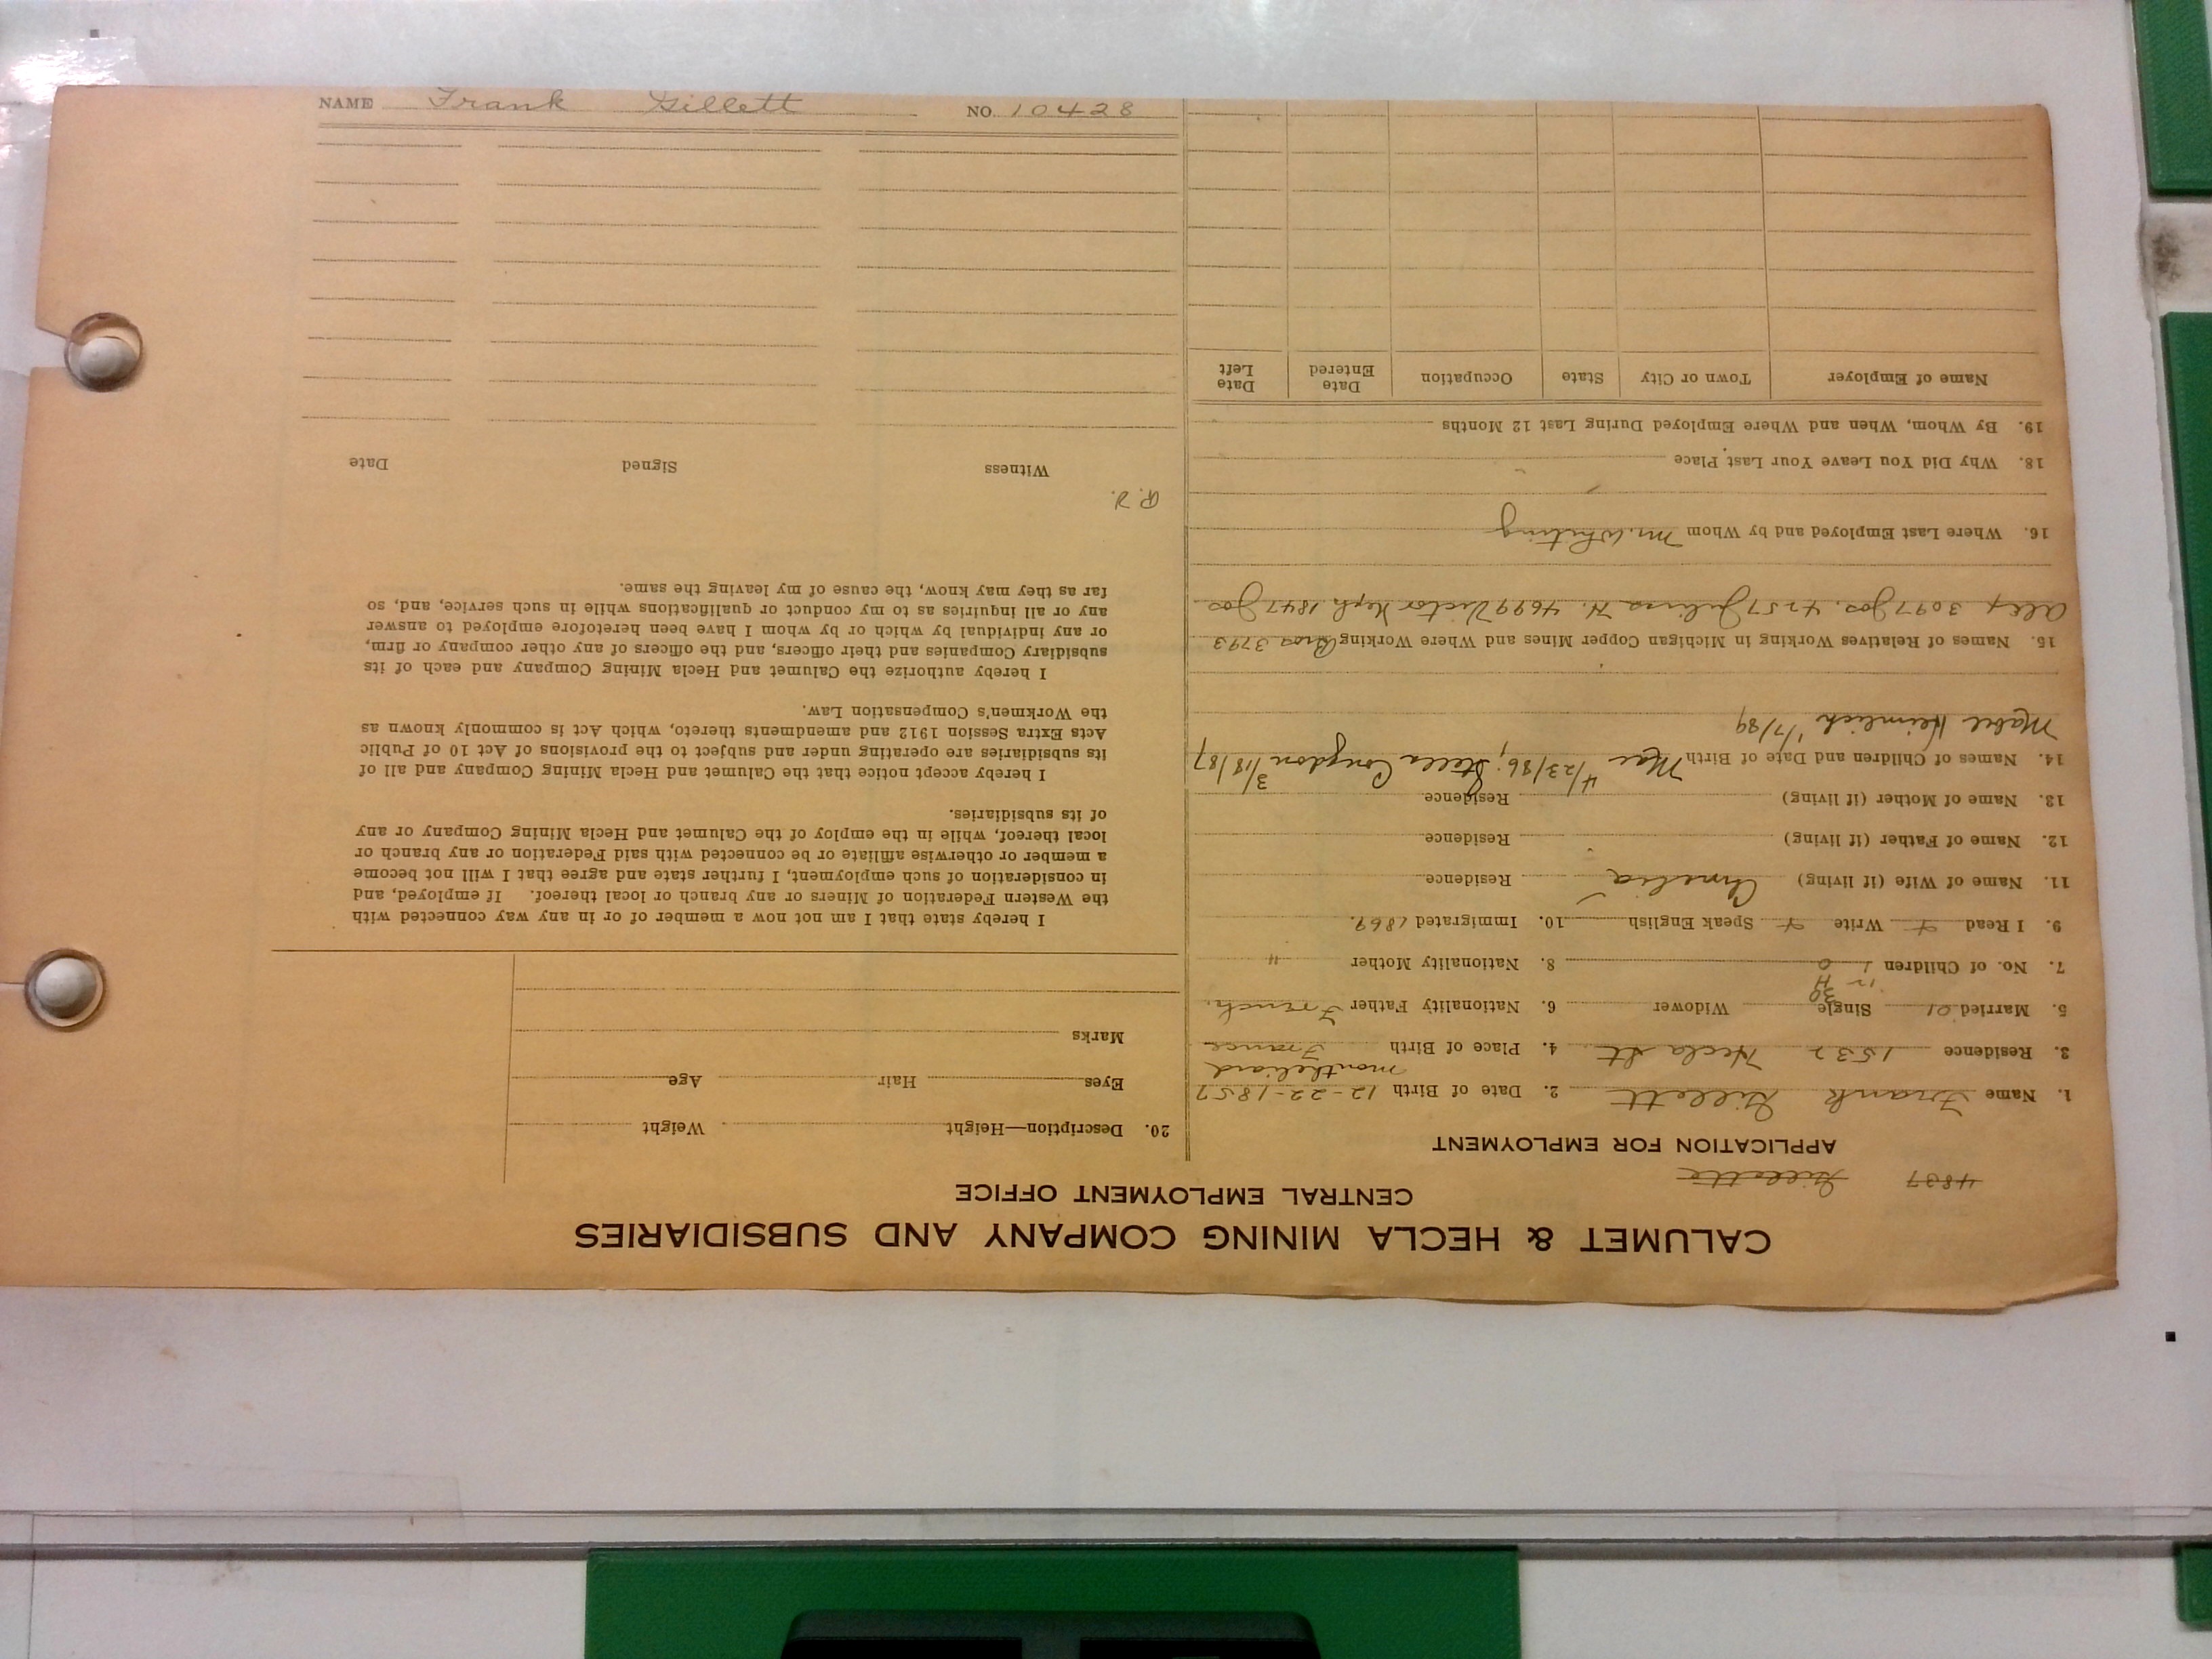 CALUMET & HECLA MINING COMPANY AND SUBSIDIARIES
CENTRAL EMPLOYMENT OFFICE
4837 Gillette
APPLICATION FOR EMPLOYMENT
1. Name Frank Gillett 2. Date of Birth 12-22-1857
montheliard
3. Residence 1532 Hecla St 4. Place of Birth France
5. Married 01 Single Widower 6. Nationality Father French.
7. No. of Children 8. Nationality Mother "
9. I Read + Write + Speak English 10. Immigrated 1869.
11. Name of Wife (if living) Amelia Residence
12. Name of Father (if living) Residence
13. Name of Mother (if living) Residence
14. Names of Children and Date of Birth Mae 4/23/86; Stella Congdon 3/18/87
Mabel Heimlich 1/7/89
15. Names of Relatives Working in Michigan Copper Mines and Where Working Bros 3793
Alex 3097 Jos. 4257 Julius H. 4699 Victor Neph. 1847 Jos
16. Where Last Employed and by Whom Mr. Whiting
18. Why Did You Leave Your Last Place
19. By Whom, When and Where Employed During Last 12 Months
Name of Employer Town or City State Occupation Date Entered Date Left
20. Description—Height Weight
Eyes Hair Age
Marks
I hereby state that I am not now a member of or in any way connected with
the Western Federation of Miners or any branch or local thereof. If employed, and
in consideration of such employment, I further state and agree that I will not become
a member or otherwise affiliate or be connected with said Federation or any branch or
local thereof, while in the employ of the Calumet and Hecla Mining Company or any
of its subsidiaries.
I hereby accept notice that the Calumet and Hecla Mining Company and all of
its subsidiaries are operating under and subject to the provisions of Act 10 of Public
Acts Extra Session 1912 and amendments thereto, which Act is commonly known as
the Workmen's Compensation Law.
I hereby authorize the Calumet and Hecla Mining Company and each of its
subsidiary Companies and their officers, and the officers of any other company or firm,
or any individual by which or by whom I have been heretofore employed to answer
any or all inquiries as to my conduct or qualifications while in such service, and, so
far as they may know, the cause of my leaving the same.
Witness Signed Date
NAME Frank Gillett NO. 10428